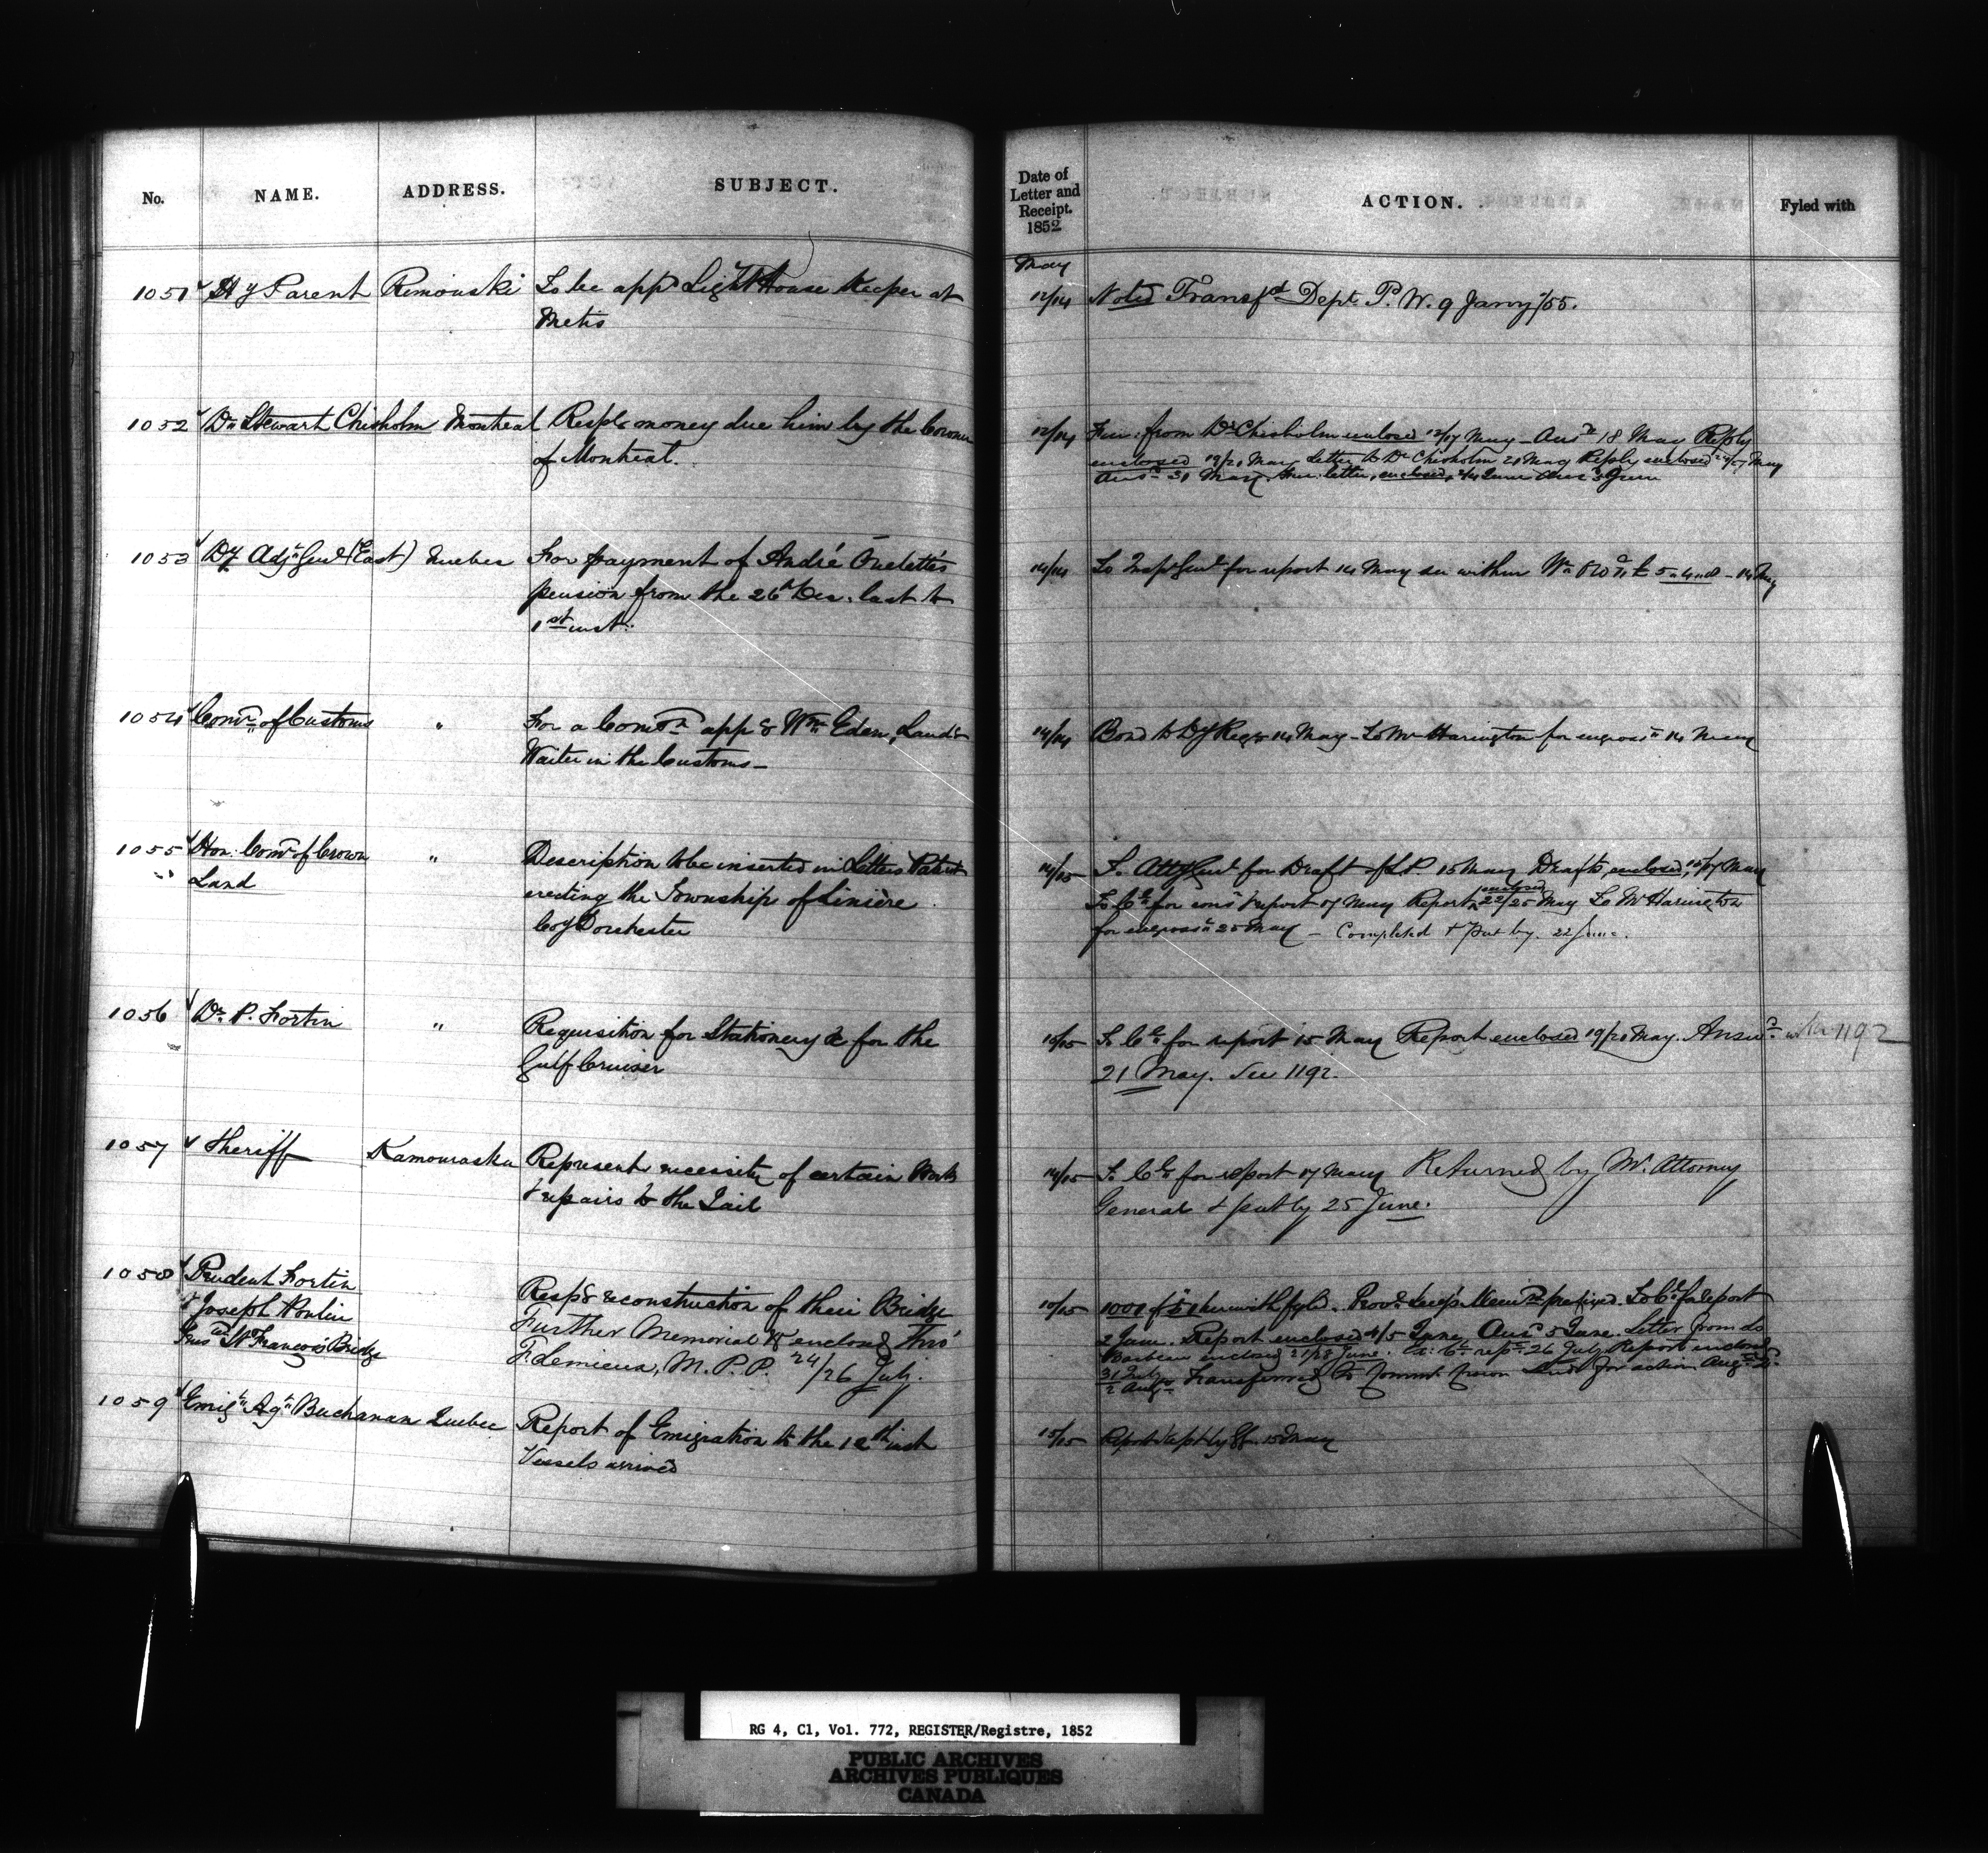 No.
NAME.
ADDRESS.
SUBJECT.
Date of
Letter and
Receipt.
1852
ACTION.
Fyled with
May
1051 Hy Parent Rimouski To be appd Light House Keeper at
Metis
12/14 Noted Transfd Dept. P. W. 9 Jany /55.
1052 Dr Stewart Chisholm Montreal Respg money due him by the Coroner
of Montreal.
12/14 Fur: from Dr Chisholm enclosed 12/17 May - Ansd 18 May Reply
enclosed 19/20 May Letter to Dr Chisholm 21 May Reply enclosed May
Ansd 31 May. Fur: letter, enclosed, June Ansd June
1053 Dy Adjt Genl (East) Quebec For payment of André Ouelette's
pension from the 26th Dec. last to
1st inst:
14/14 To Inspr Genl for report 14 May see within 14 May
1054 Comr of Customs " For a Comon appg Wm Eden, Landg
Waiter in the Customs -
14/14 Bond to Dy Regr 14 May - To Mr Harington for engrossn 14 May
1055 Hon: Comr of Crown " Description to be inserted in Letters Patent
Land
erecting the Township of Linière
Coy Dorchester
14/15 To Atty Genl for Draft of L.P. 15 May Drafts, enclosed, 15/17 May
To Ce for consn & report 17 May Report enclosed 22/25 May To Mr Harington
for engrossn 25 May - Completed & put by. 22 June.
1056 Dr. P. Fortin " Requisition for Stationery &c for the
Gulf Cruiser
15/15 To Ce for report 15 May Report enclosed 19/20 May. Answd 1192
21 May. See 1192.
1057 Sheriff Kamouraska Represent necessity of certain Works
& repairs to the Jail
14/15 To Ce for report 17 May Returned by Mr. Attorney
General & put by 25 June.
1058 Prudent Fortin
& Joseph Poulin
St François Bridge
Respg reconstruction of their Bridge
Further Memorial &c enclosed thro'
F. Lemieux, M.P.P. 24/26 July.
10/15 1001 of herewith fyld. Provl Secy's Memdm prefixed. To Ce for report
2 June. Report enclosed 4/5 June, Ansd 5 June. Letter from do
enclosed June. To Ce rept 26 July Report enclosed
31 July
2 Augt Transferred to Commr Crown Lands for action Augt
1059 Emign Agt Buchanan Quebec Report of Emigration to the 12th inst
Vessels arrived
15/15 Report kept by 15 May
RG 4, C1, Vol. 772, REGISTER/Registre, 1852
PUBLIC ARCHIVES
ARCHIVES PUBLIQUES
CANADA